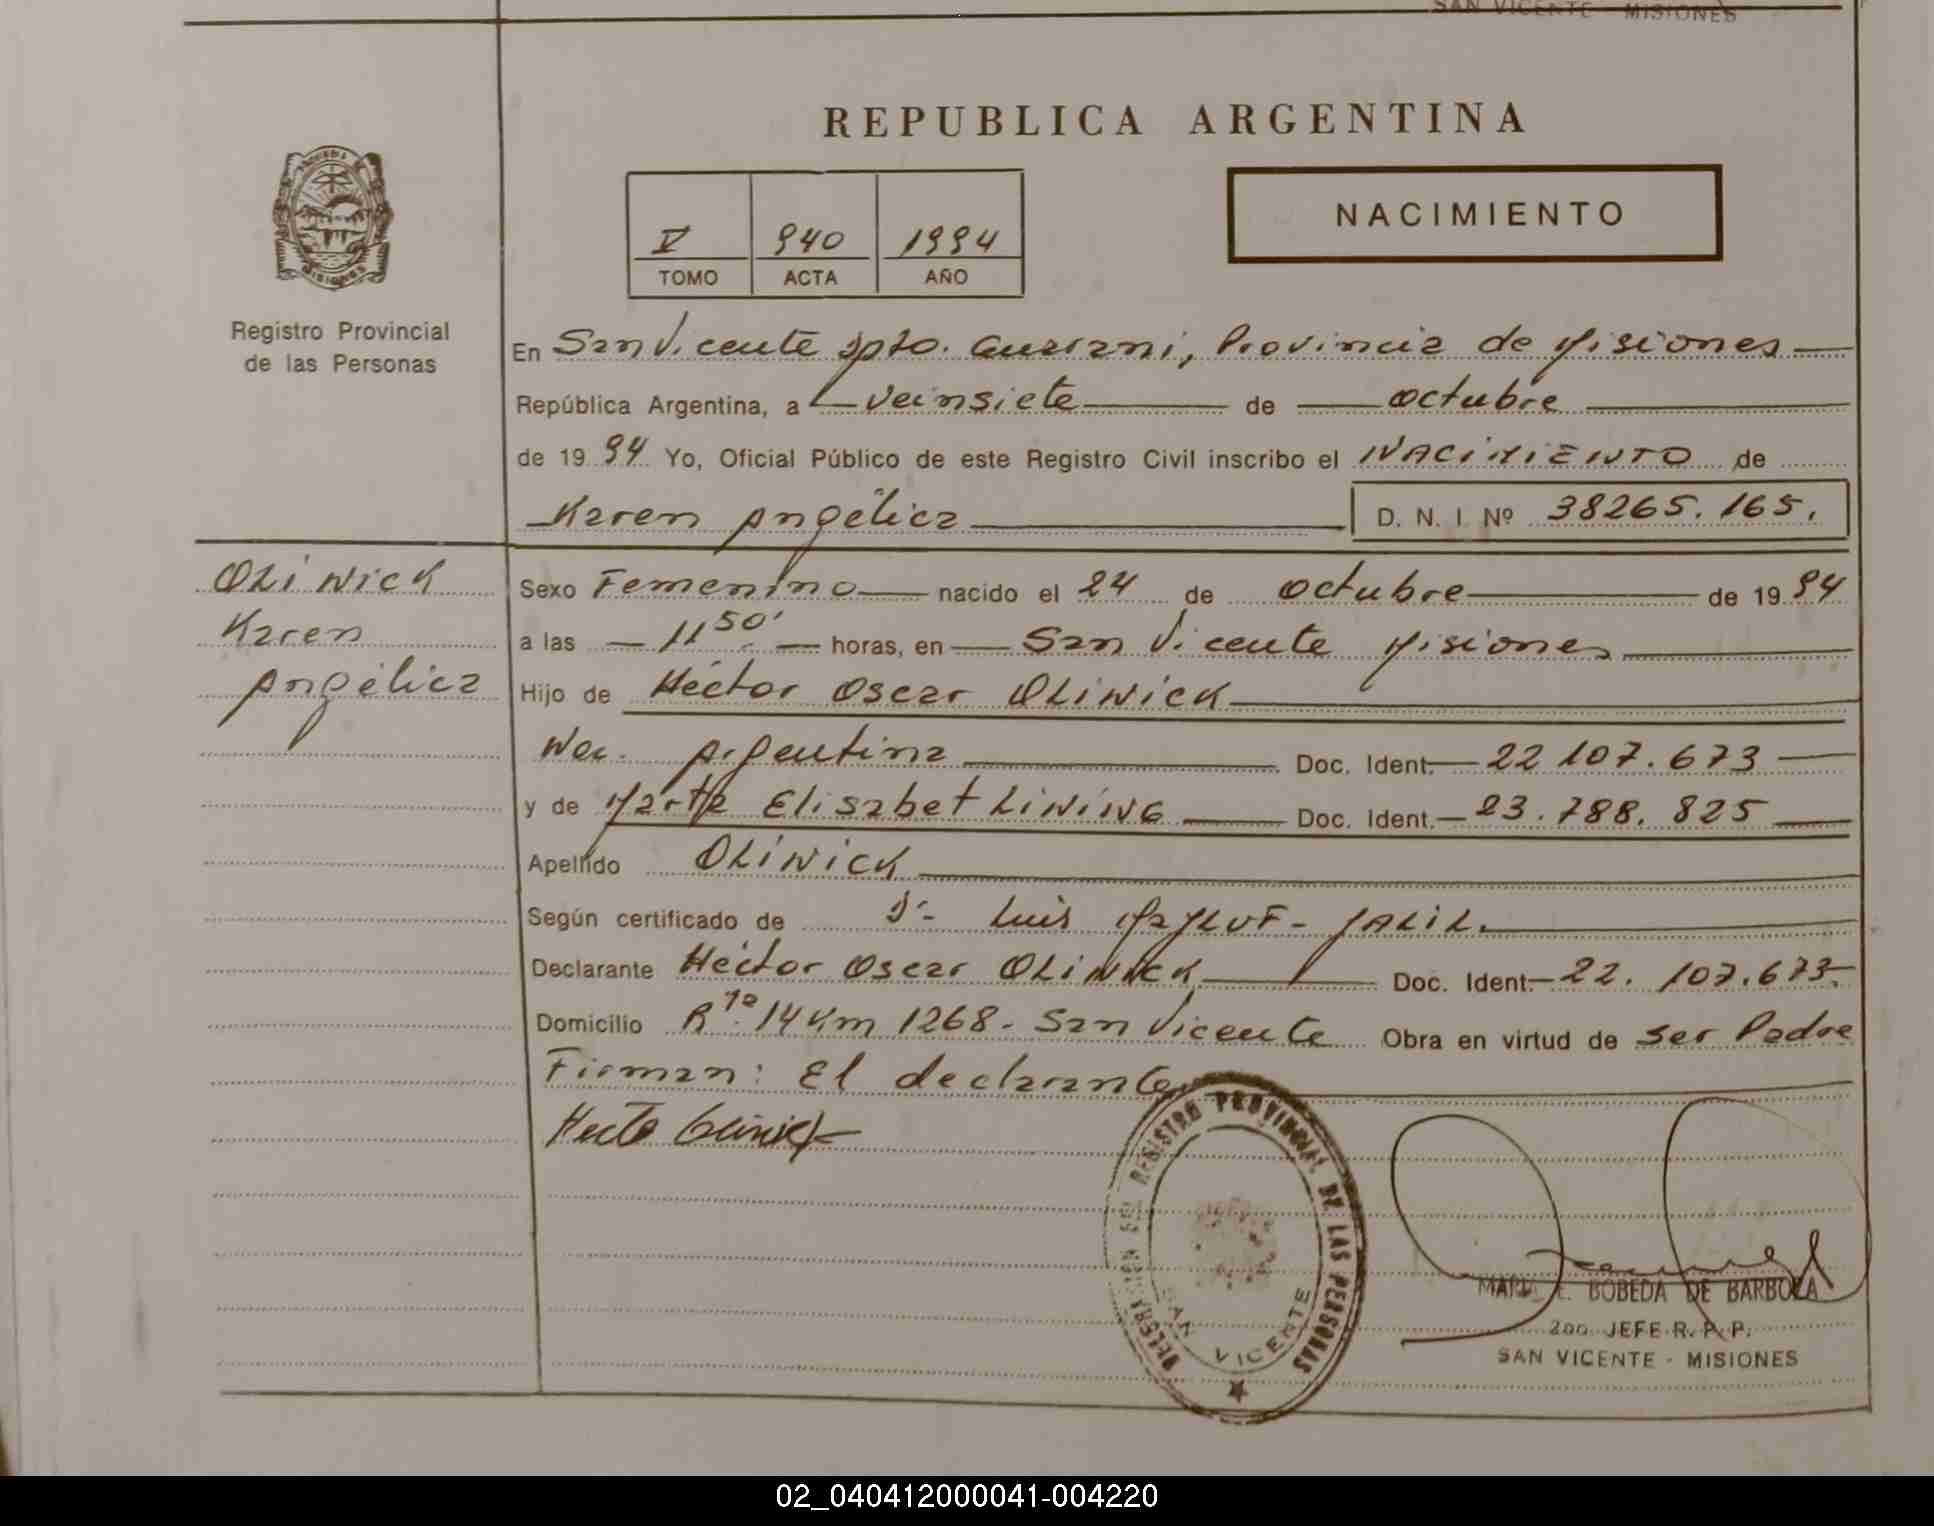 SAN VICENTE - MISIONES
REPUBLICA ARGENTINA
MISIONES
Registro Provincial
de las Personas
V 940 1994
TOMO ACTA AÑO
NACIMIENTO
En San Vicente Dpto. Guarani, Provincia de Misiones
República Argentina, a veinsiete de octubre
de 19 94 Yo, Oficial Público de este Registro Civil inscribo el NACIMIENTO de
Karen Angélica D. N. I. Nº 38265.165.
OLINICK
Karen
Angélica
Sexo Femenino nacido el 24 de octubre de 19 94
a las 11 50' horas, en San Vicente Misiones
Hijo de Héctor Oscar OLINICK
Nac. Argentina Doc. Ident. 22 107.673
y de Marta Elisabet LINING Doc. Ident. 23.788.825
Apellido OLINICK
Según certificado de Dr Luis JALIL.
Declarante Héctor Oscar OLINICK Doc. Ident. 22.107.673.
Domicilio Rta. 14 Km 1268. San Vicente Obra en virtud de ser Padre
Firman: El declarante
DELEGACION DEL REGISTRO PROVINCIAL DE LAS PERSONAS
SAN VICENTE
MARIA E. BOBEDA DE BARBOZA
2do. JEFE R. P. P.
SAN VICENTE - MISIONES
02_040412000041-004220